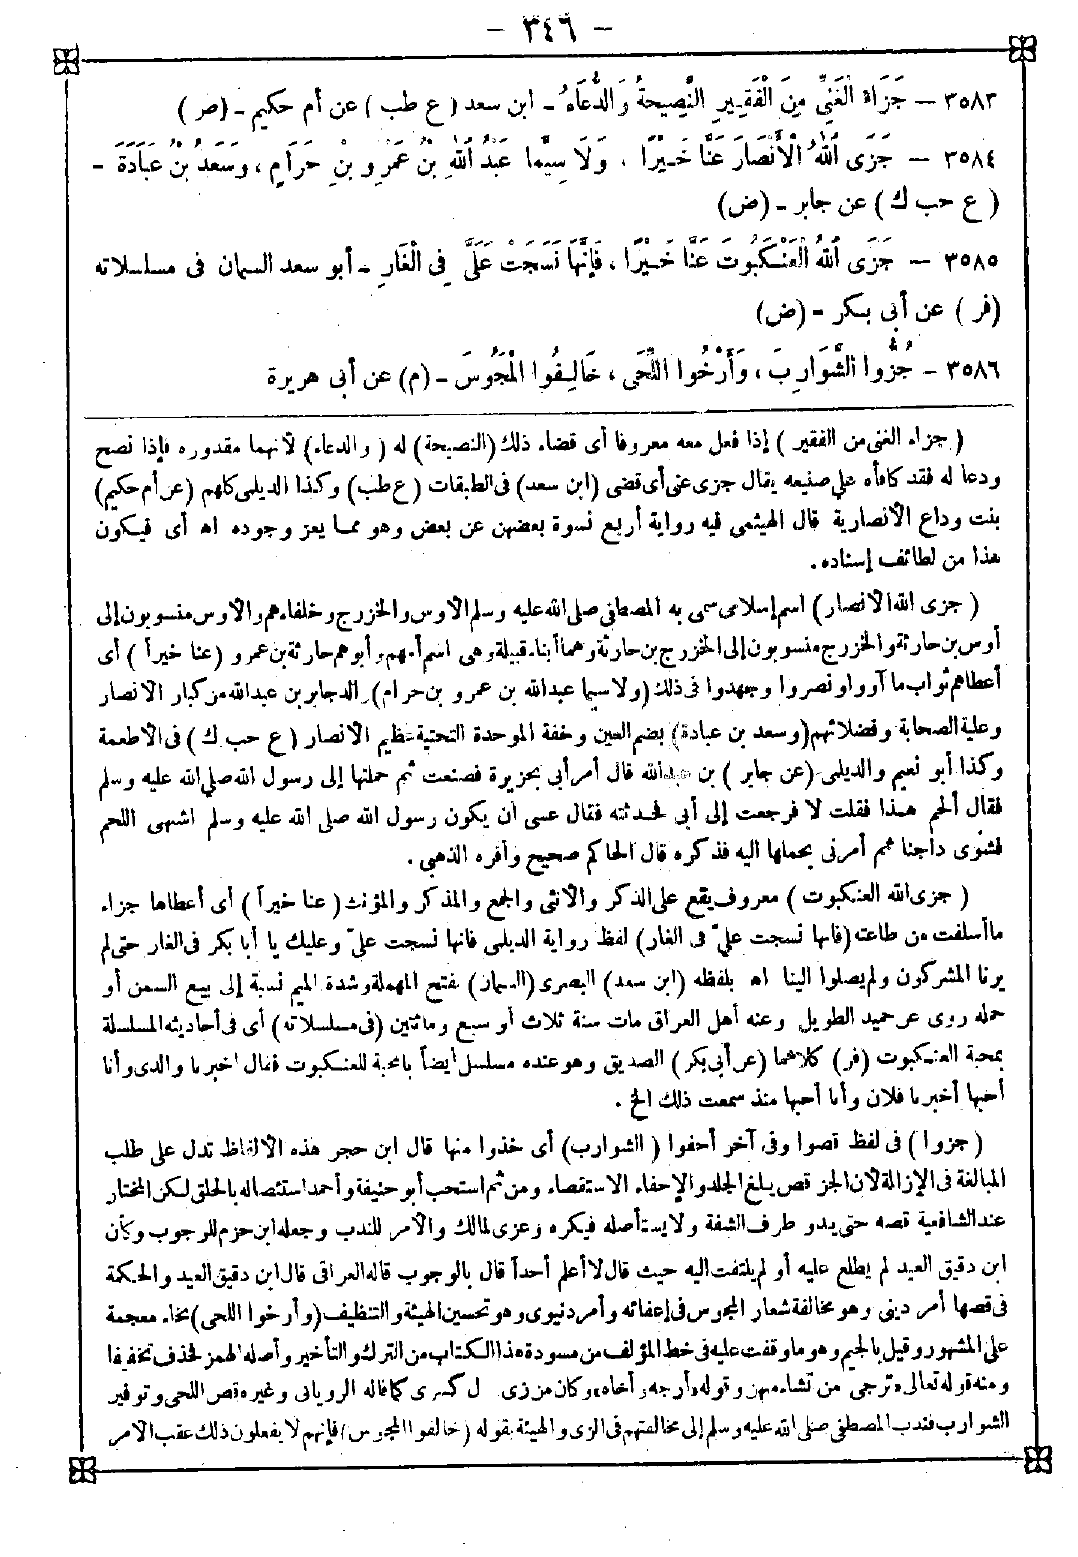 – ٣٤٦ –
٣٥٨٣ – جَزَاءُ الْغَنِيِّ مِنَ الْفَقِيرِ النَّصِيحَةُ وَالدُّعَاءُ - ابن سعد (ع طب) عن أم حكيم - (صح)
٣٥٨٤ – جَزَى اللهُ الْأَنْصَارَ عَنَّا خَيْرًا ، وَلَا سِيَّمَا عَبْدُ اللهِ بْنُ عَمْرِو بْنِ حَرَامٍ ، وَسَعْدُ بْنُ عُبَادَةَ -
(ع حب ك) عن جابر - (ض)
٣٥٨٥ – جَزَى اللهُ الْعَنْكَبُوتَ عَنَّا خَيْرًا ، فَإِنَّهَا نَسَجَتْ عَلَيَّ فِي الْغَارِ - أبو سعد السمان فى مسلسلاته
(فر) عن أبى بكر - (ض)
٣٥٨٦ – جُزُّوا الشَّوَارِبَ ، وَأَرْخُوا اللِّحَى ، خَالِفُوا الْمَجُوسَ - (م) عن أبى هريرة
(جزاء الغنى من الفقير) إذا فعل معه معروفا أى قضاء ذلك (النصيحة) له (والدعاء) لأنهما مقدوره فإذا نصح
ودعا له فقد كافأه على صنيعه يقال جزى عنى أى قضى (ابن سعد) فى الطبقات (ع طب) وكذا الديلمى كلهم (عن أم حكيم)
بنت وداع الأنصارية قال الهيثمى فيه رواية أربع نسوة بعضهن عن بعض وهو مما يعز وجوده اه أى فيكون
هذا من لطائف إسناده .
(جزى الله الأنصار) اسم إسلامى سمى به المصطفى صلى الله عليه وسلم الأوس والخزرج وخلفاءهم والأوس منسوبون إلى
أوس بن حارثة والخزرج منسوبون إلى الخزرج بن حارثة وهما أبناء قبيلة وهى اسم أمهم وأبوهم حارثة بن عمرو (عنا خيراً) أى
أعطاهم ثواب ما آووا ونصروا وجهدوا فى ذلك (ولا سيما عبدالله بن عمرو بن حرام) والد جابر بن عبدالله من كبار الأنصار
وعلية الصحابة وفضلائهم (وسعد بن عبادة) بضم العين وخفة الموحدة التحتية عظيم الأنصار (ع حب ك) فى الأطعمة
وكذا أبو نعيم والديلمى (عن جابر) بن عبدالله قال أمر أبى بحزيرة فصنعت ثم حملتها إلى رسول الله صلى الله عليه وسلم
فقال ألحم هذا فقلت لا فرجعت إلى أبى فحدثته فقال عسى أن يكون رسول الله صلى الله عليه وسلم اشتهى اللحم
فشوى داجنا ثم أمرنى بحملها اليه فذكره قال الحاكم صحيح وأقره الذهبى .
(جزى الله العنكبوت) معروف يقع على الذكر والأنثى والجمع والمذكر والمؤنث (عنا خيراً) أى أعطاها جزاء
ما أسلفت من طاعته (فانها نسجت علىّ فى الغار) لفظ رواية الديلمى فانها نسجت علىّ وعليك يا أبا بكر فى الغار حتى لم
يرنا المشركون ولم يصلوا الينا اه بلفظه (ابن سعد) البصرى (السمان) بفتح المهملة وشدة الميم نسبة إلى بيع السمن أو
حمله روى عن حميد الطويل وعنه أهل العراق مات سنة ثلاث أو سبع ومائتين (فى مسلسلاته) أى فى أحاديثه المسلسلة
بمحبة العنكبوت (فر) كلاهما (عن أبى بكر) الصديق وهو عنده مسلسل أيضاً بالمحبة للعنكبوت فقال اخبرنا والدى وأنا
أحبها أخبرنا فلان وأنا أحبها منذ سمعت ذلك الخ .
(جزوا) فى لفظ قصوا وفى آخر أحفوا (الشوارب) أى خذوا منها قال ابن حجر هذه الألفاظ تدل على طلب
المبالغة فى الإزالة لأن الجز قص يبلغ الجلد والإحفاء الاستقصاء ومن ثم استحب أبو حنيفة وأحمد استئصاله بالحلق لكن المختار
عند الشافعية قصه حتى يبدو طرف الشفة ولا يستأصله فيكره وعزى لمالك والأمر للندب وجعله ابن حزم للوجوب وكأن
ابن دقيق العيد لم يطلع عليه أو لم يلتفت اليه حيث قال لا أعلم أحداً قال بالوجوب قاله العراقى قال ابن دقيق العيد والحكمة
فى قصها أمر دينى وهو مخالفة شعار المجوس فى إعفائه وأمر دنيوى وهو تحسين الهيئة والتنظيف (وأرخوا اللحى) بخاء معجمة
على المشهور وقيل بالجيم وهو ما وقفت عليه فى خط المؤلف من مسودة هذا الكتاب من الترك والتأخير وأصله الهمز فحذف تخفيفا
ومنه قوله تعالى «ترجى من تشاء منهن» وقوله «أرجه وأخاه» وكان من زى ل كسرى كما قاله الرويانى وغيره قص اللحى وتوفير
الشوارب فندب المصطفى صلى الله عليه وسلم إلى مخالفتهم فى الزى والهيئة بقوله (خالفوا المجوس) فإنهم لا يفعلون ذلك عقب الأمر